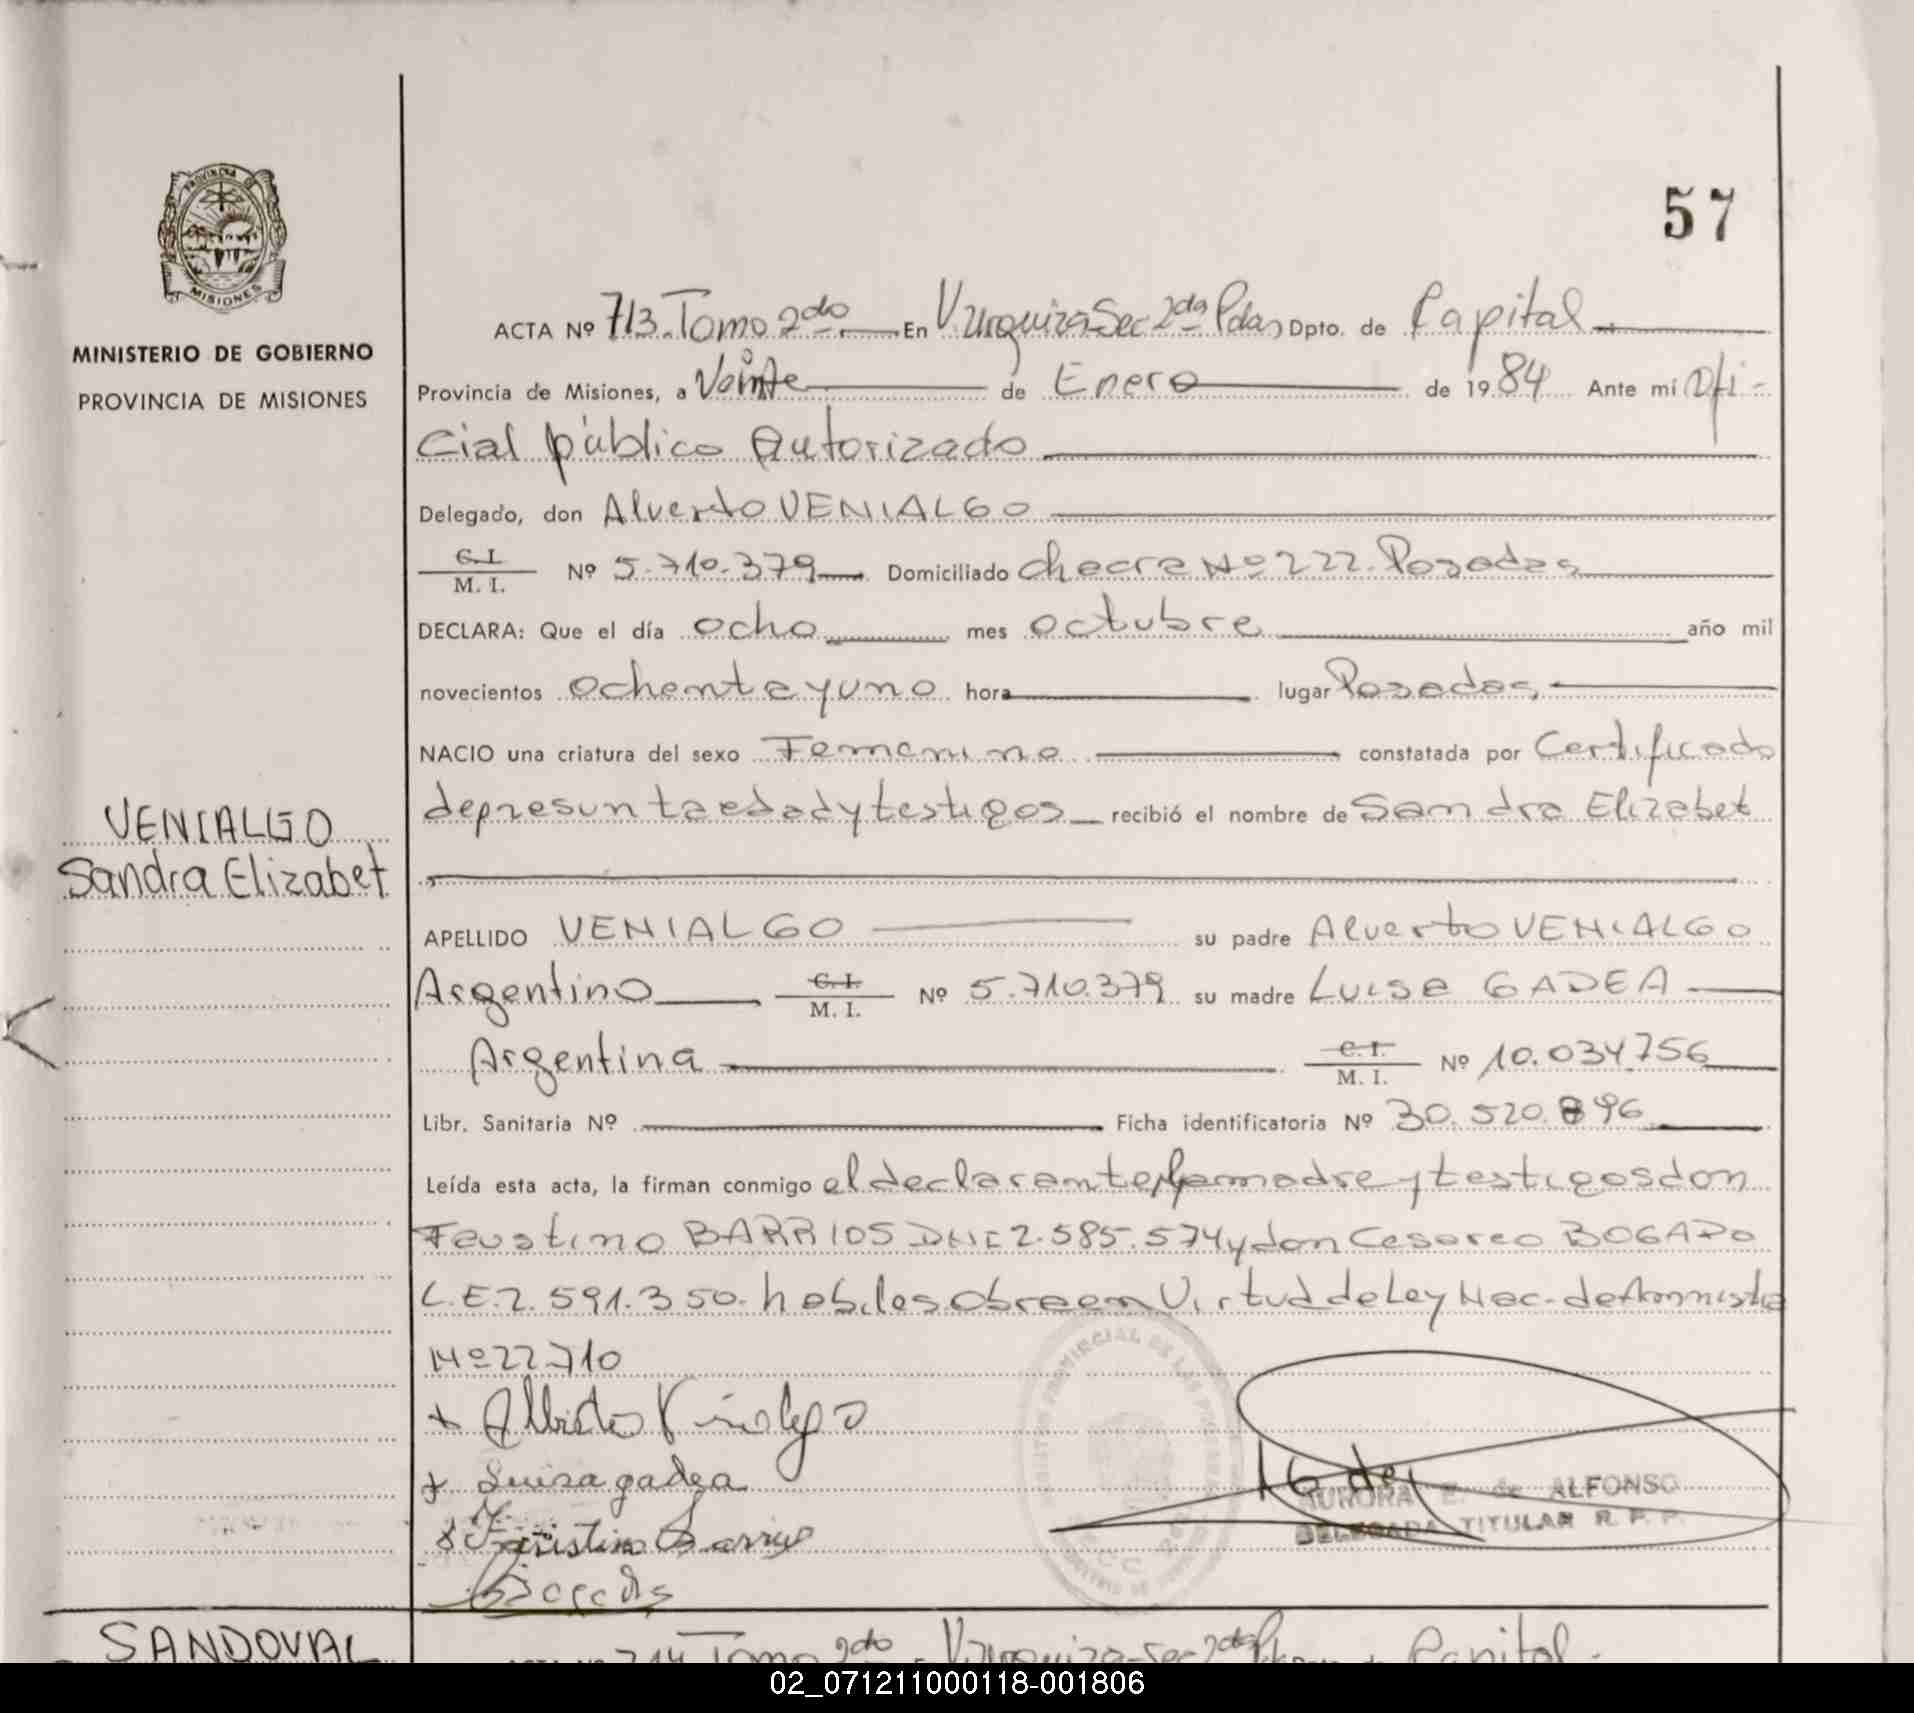 57
PROVINCIA DE
MISIONES
MINISTERIO DE GOBIERNO
PROVINCIA DE MISIONES
ACTA Nº 713. Tomo 2do. En V. Urquiza Sec 2da Pdas Dpto. de Capital
Provincia de Misiones, a Veinte de Enero de 1984 Ante mí Ofi-
cial público Autorizado
Delegado, don Alverto VENIALGO
C.I. M. I. Nº 5.710.379 Domiciliado Chacra Nº 222. Posadas
DECLARA: Que el día ocho mes octubre año mil
novecientos ochenta y uno hora lugar Posadas
NACIO una criatura del sexo Femenino constatada por Certificado
de presunta edad y testigos recibió el nombre de Sandra Elizabet
VENIALGO
Sandra Elizabet
APELLIDO VENIALGO su padre Alverto VENIALGO
Argentino C.I. M. I. Nº 5.710.379 su madre Luisa GADEA
Argentina C.I. M. I. Nº 10.034.756
Libr. Sanitaria Nº Ficha identificatoria Nº 30.520.896
Leída esta acta, la firman conmigo el declarante, la madre y testigos don
Faustino BARRIOS 2.585.574 y don Cesareo BOGADO
L.E. 2.591.350. habiles obra en Virtud de Ley Nac. de Amnistia
Nº 22.710
Luisa gadea
Faustino Barrios
AURORA E. de ALFONSO
DELEGADA TITULAR R. P. P.
SANDOVAL
ACTA Nº 714 Tomo 2do En V. Urquiza Sec 2da Dpto. de Capital
02_071211000118-001806